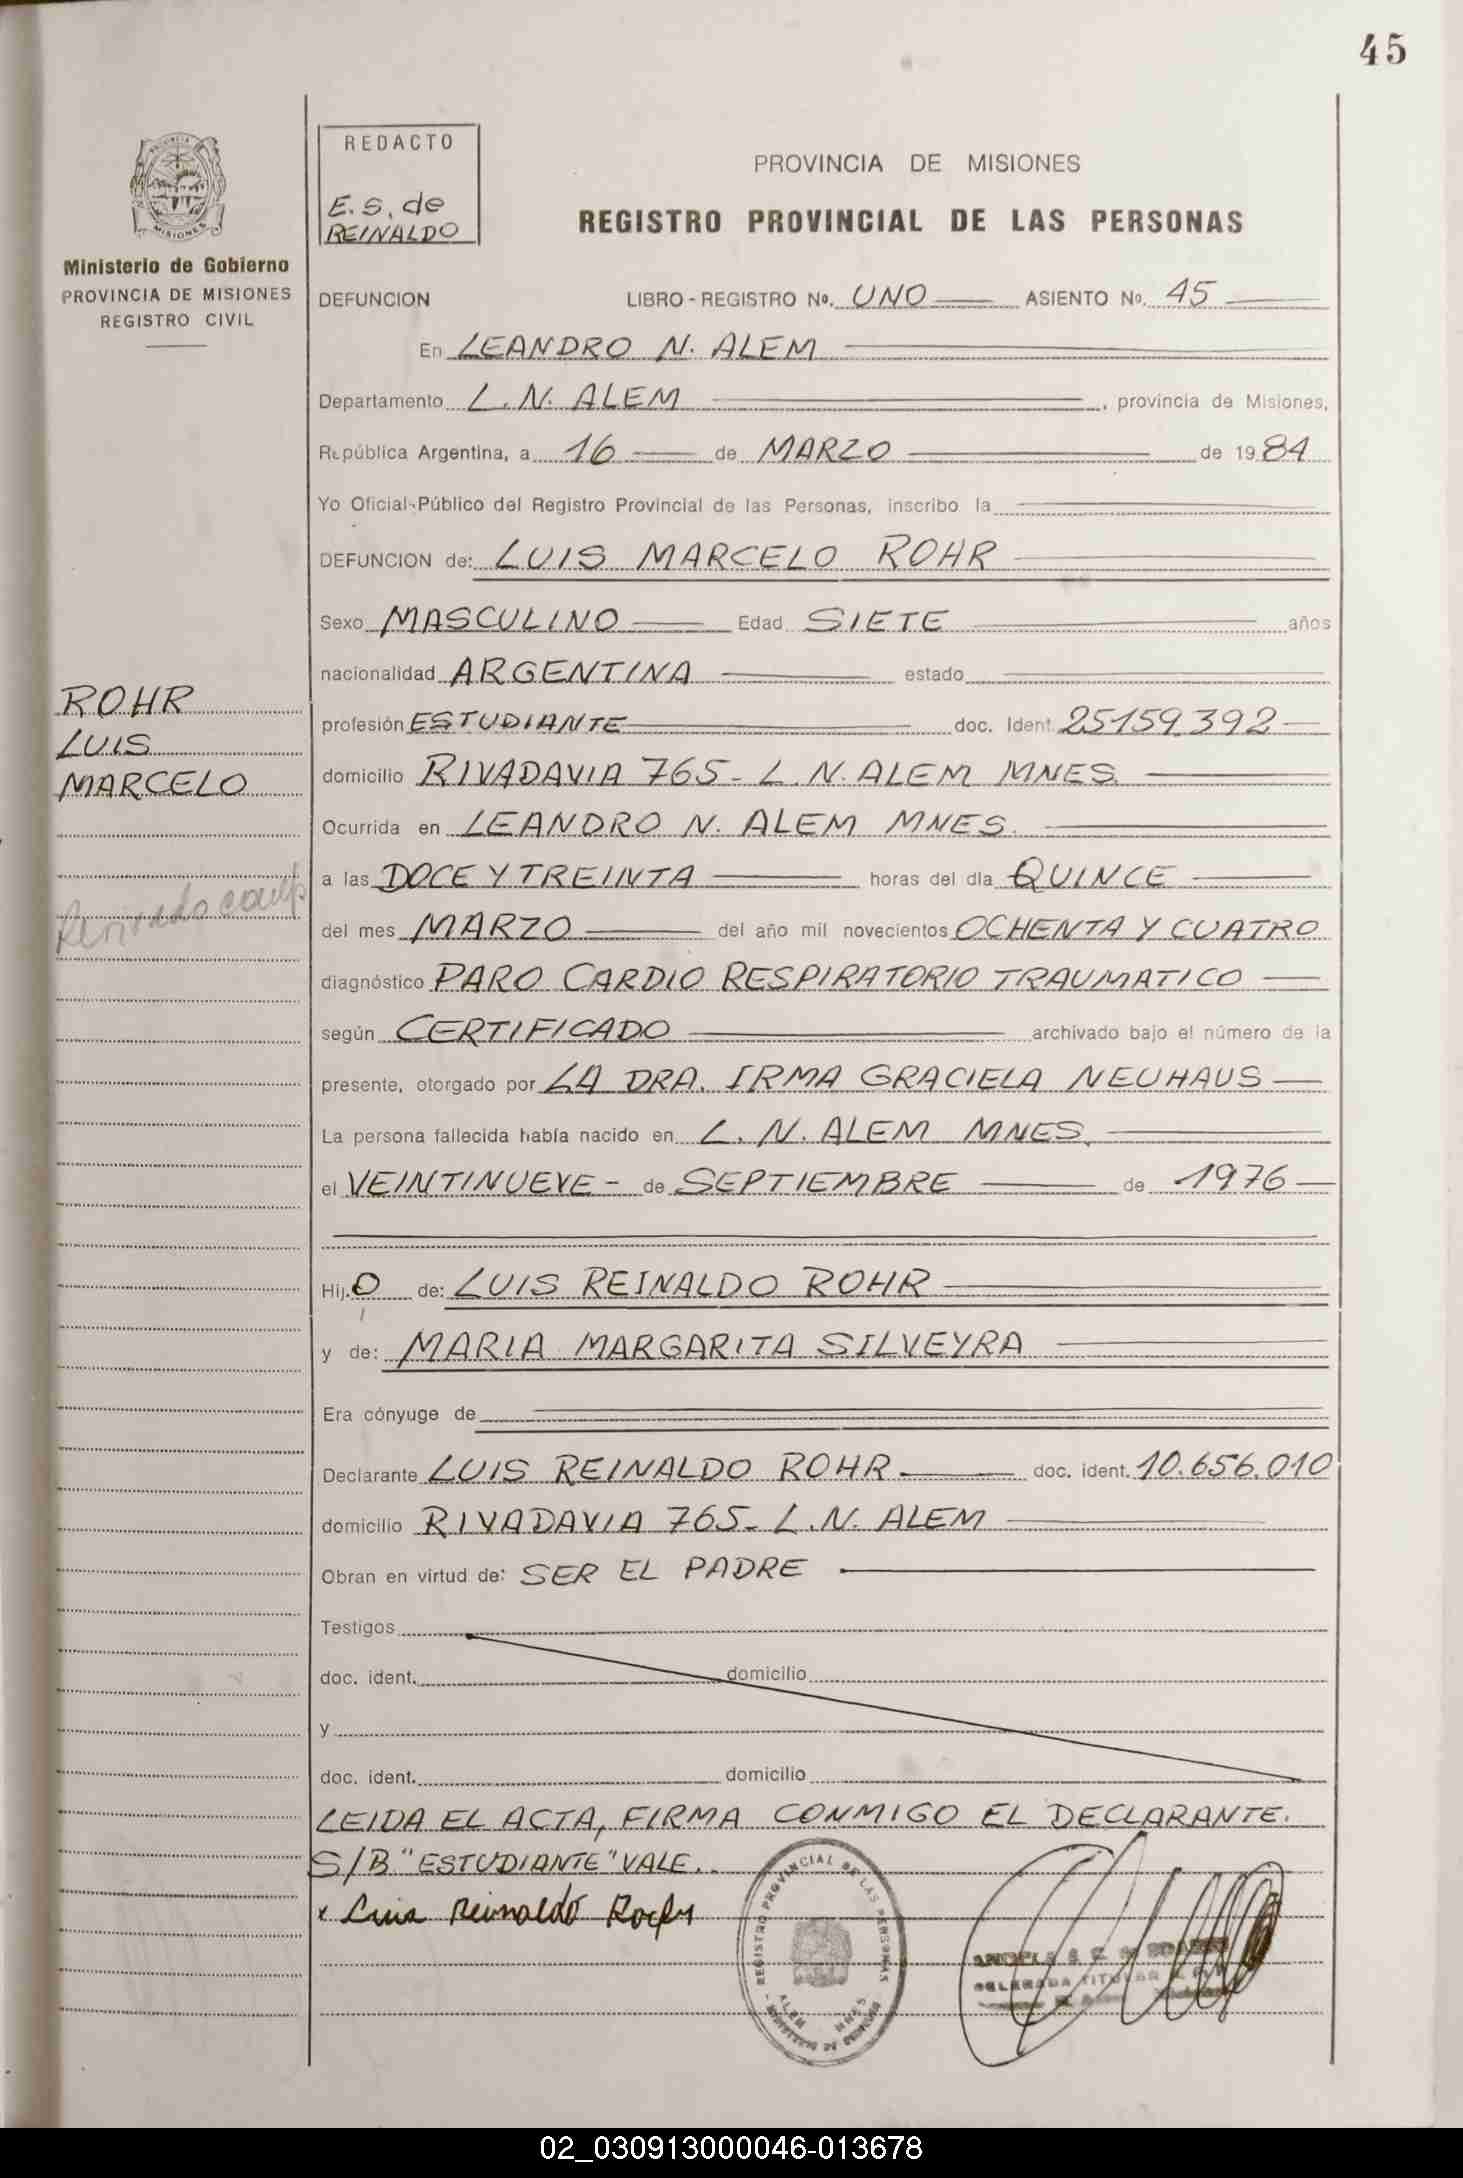 45
REDACTO
E.S. de
REINALDO
PROVINCIA DE MISIONES
REGISTRO PROVINCIAL DE LAS PERSONAS
Ministerio de Gobierno
PROVINCIA DE MISIONES
REGISTRO CIVIL
DEFUNCION LIBRO - REGISTRO No. UNO ASIENTO No. 45
En LEANDRO N. ALEM
Departamento L. N. ALEM, provincia de Misiones,
República Argentina, a 16 de MARZO de 1984
Yo Oficial Público del Registro Provincial de las Personas, inscribo la
DEFUNCION de: LUIS MARCELO ROHR
Sexo MASCULINO Edad SIETE años
nacionalidad ARGENTINA estado
profesión ESTUDIANTE doc. Ident. 25159.392
domicilio RIVADAVIA 765- L.N. ALEM MNES.
Ocurrida en LEANDRO N. ALEM MNES.
a las DOCE Y TREINTA horas del día QUINCE
del mes MARZO del año mil novecientos OCHENTA Y CUATRO
diagnóstico PARO CARDIO RESPIRATORIO TRAUMATICO
según CERTIFICADO archivado bajo el número de la
presente, otorgado por LA DRA. IRMA GRACIELA NEUHAUS
La persona fallecida había nacido en L. N. ALEM MNES.
el VEINTINUEVE - de SEPTIEMBRE de 1976
Hij.O de: LUIS REINALDO ROHR
y de: MARIA MARGARITA SILVEYRA
Era cónyuge de
Declarante LUIS REINALDO ROHR doc. ident. 10.656.010
domicilio RIVADAVIA 765- L.N. ALEM
Obran en virtud de: SER EL PADRE
Testigos
doc. ident. domicilio
y
doc. ident. domicilio
LEIDA EL ACTA, FIRMA CONMIGO EL DECLARANTE.
S/B "ESTUDIANTE" VALE.
x Luis Reinaldo Rohr
ROHR
LUIS
MARCELO
REGISTRO PROVINCIAL DE LAS PERSONAS
ALEM MNES
02_030913000046-013678